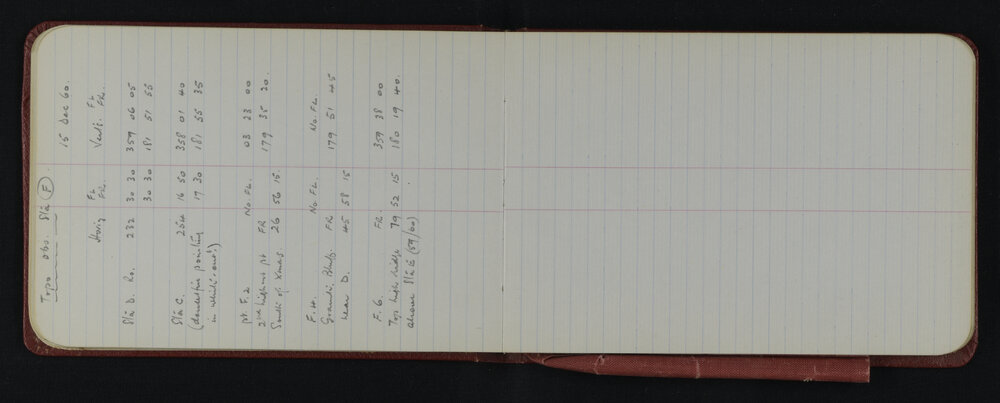 Topo obs. Stn F.
15 Dec 60.
Horiz FL FR. Vert. FL FR.
Stn D. Ro. 232 30 30 359 06 05
30 30 181 51 55
Stn C. 254 16 50 358 01 40
(doubtful pointing 17 30 181 55 35
in white-out!)
pt. F.2 No FL. 03 23 00
2nd highest pt FR 26 56 15 179 35 20.
South of Xmas.
F.4. No FL. No FL.
Granite Bluff FR 45 58 15 179 51 45
near D.
F.6. FR. 359 38 00
Top high ridge 79 52 15 180 19 40.
above Stn E (59/60)